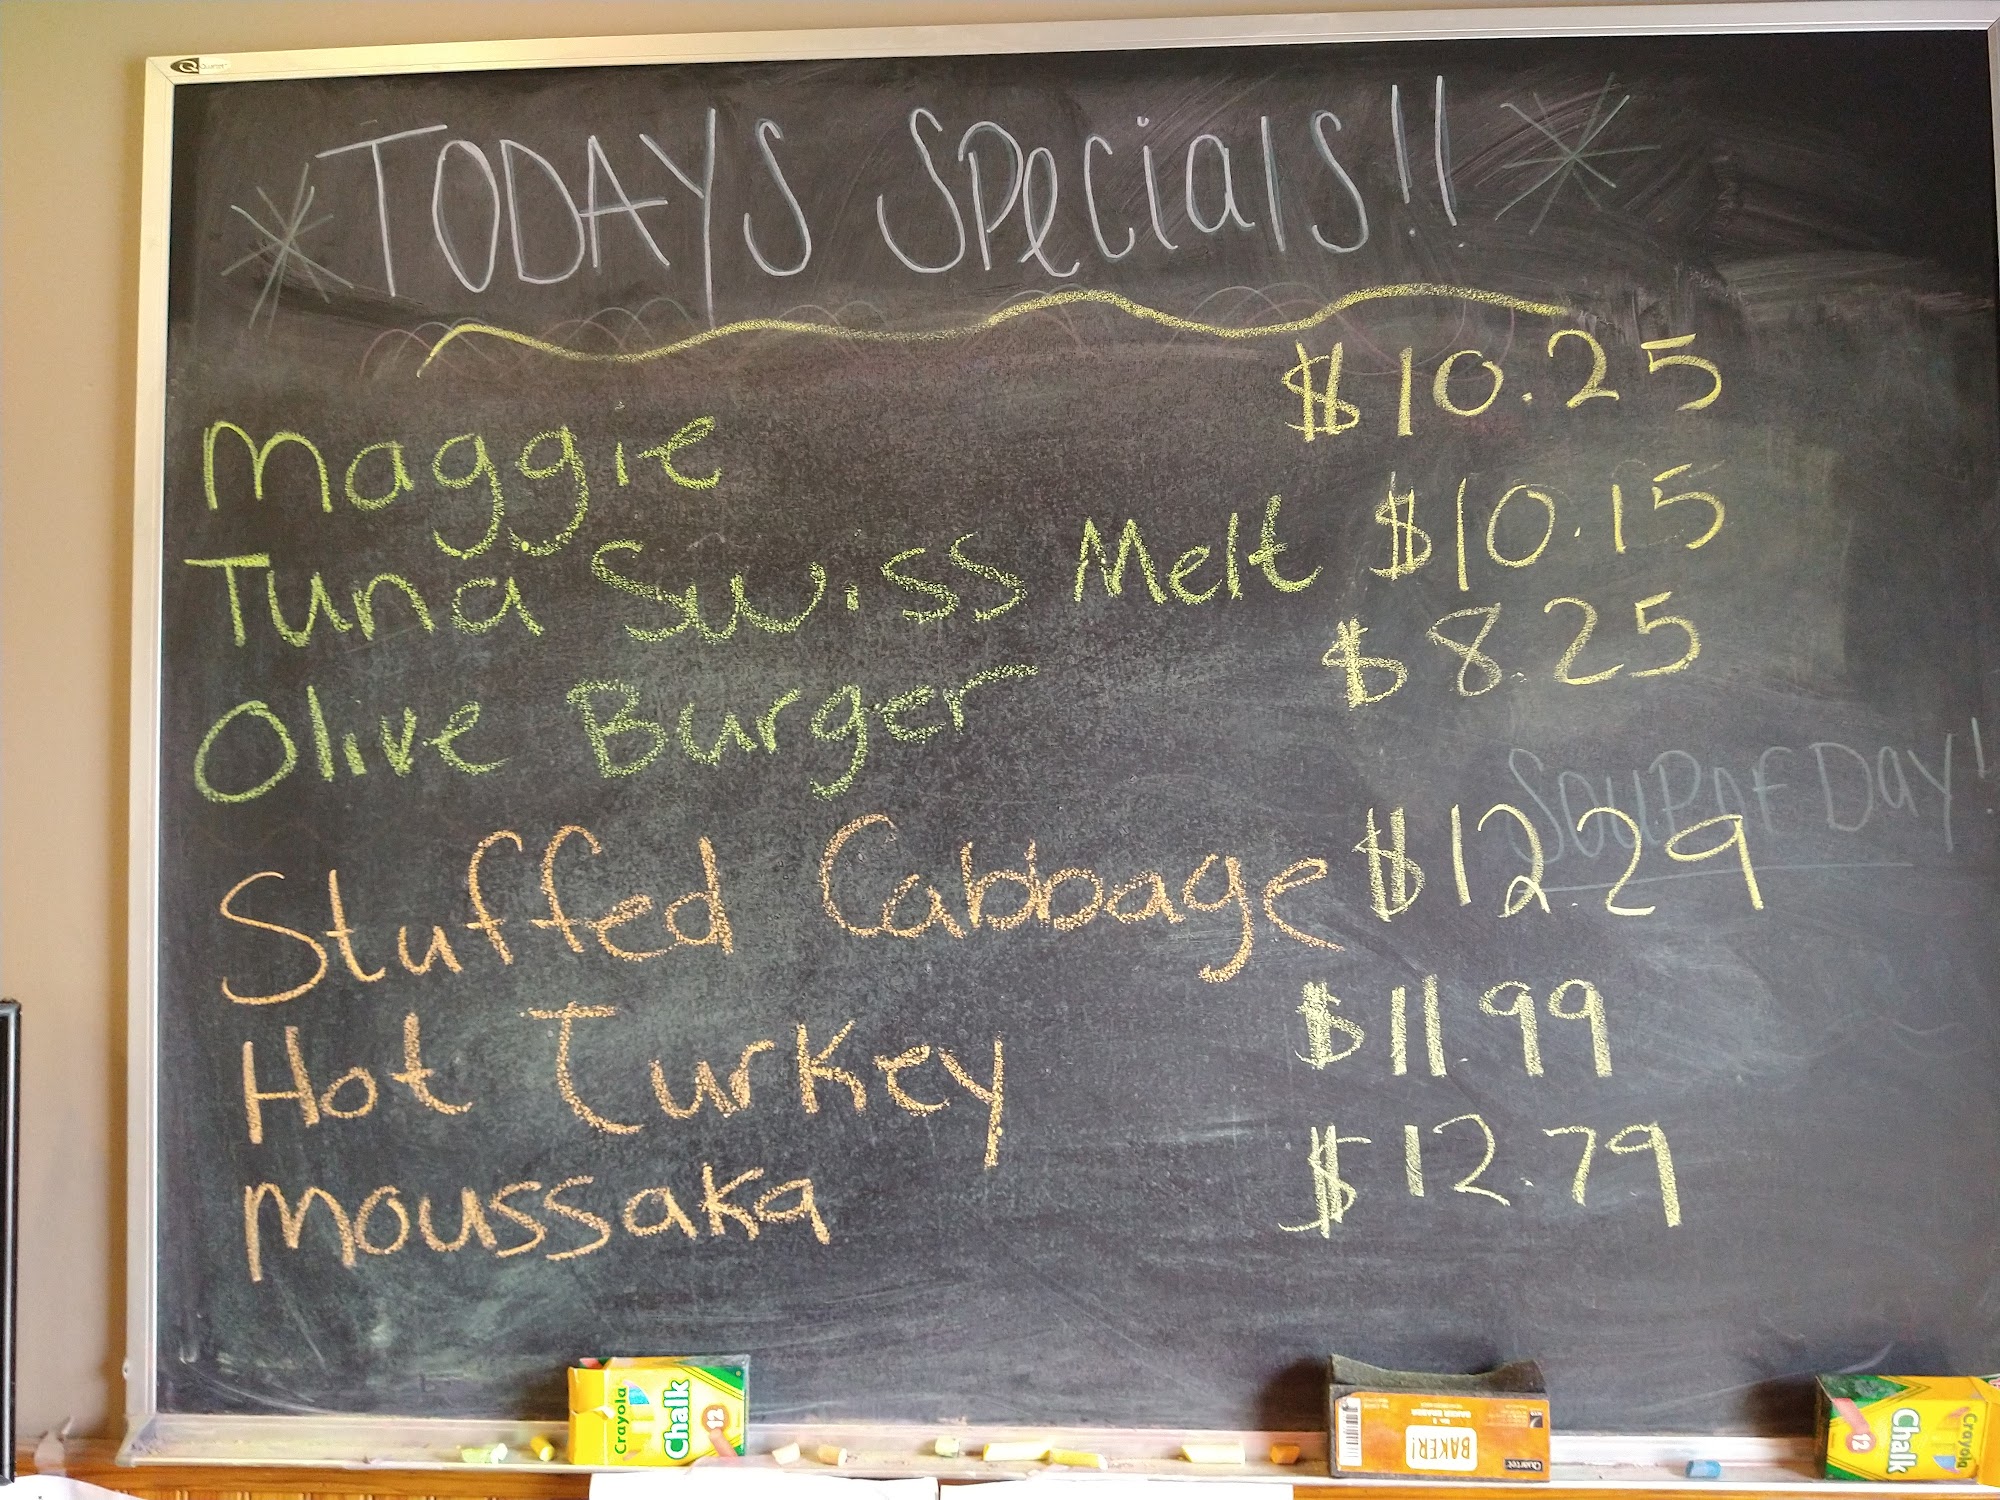 Quartet
TODAYS Specials!!
Maggie $10.25
Tuna Swiss Melt $10.15
Olive Burger $8.25
Soup of Day!
Stuffed Cabbage $12.29
Hot Turkey $11.99
Moussaka $12.79
Crayola
Chalk
12
BAKER!
Quartet
Crayola
Chalk
12